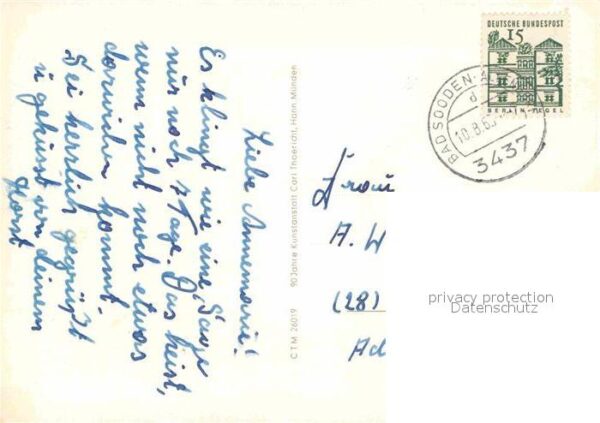 Liebe Annemarie!
Es klingt wie eine Sage
nur noch 7 Tage. Das heist,
wenn nicht noch etwas
dazwischen kommt.
Sei herzlich gegrüßt
u geküsst von deinem
Horst
90 Jahre Kunstanstalt Carl Thoericht, Hann. Münden
CTM 26019
DEUTSCHE BUNDESPOST
15
BERLIN-TEGEL
BAD SOODEN-A
d
10.8.65
3437
Frau
A. W
(28)
Ad
privacy protection
Datenschutz